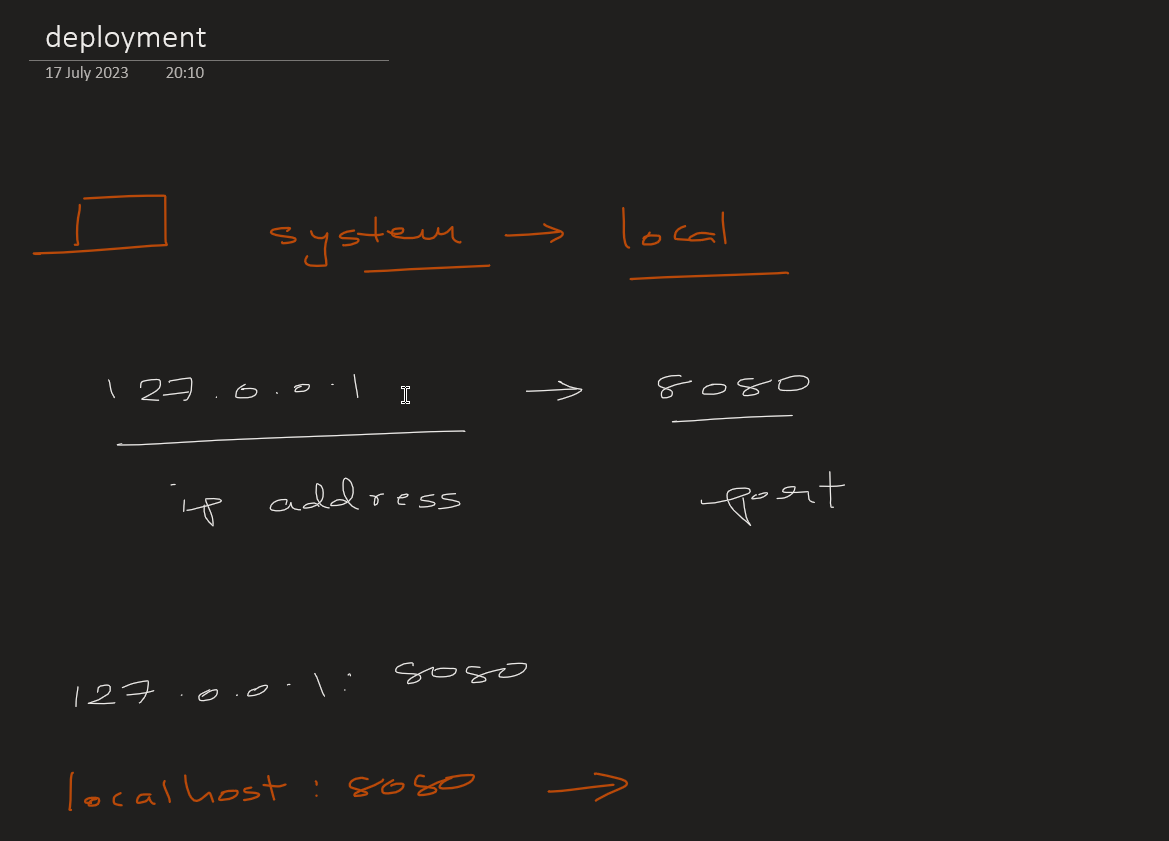 deployment
17 July 2023 20:10
system → local
127.0.0.1 → 8080
ip address port
127.0.0.1: 8080
localhost: 8080 →